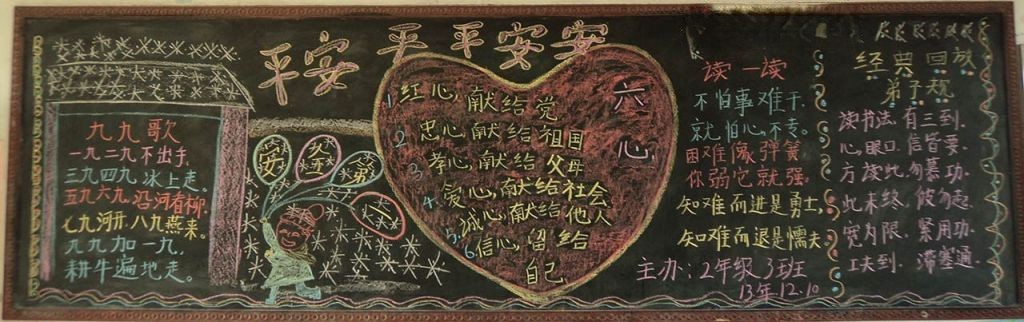 平安 平 平安安
九九歌
一九二九不出手,
三九四九冰上走。
五九六九沿河看柳.
七九河开.八九燕来。
九九加一九,
耕牛遍地走。
安
全
第
一
六心
1 红心,献给党
2 忠心献给祖国
3 孝心,献给父母
4. 爱心,献给社会
5. 诚心献给他人
6 信心留给
自己
读一读
不怕事难干.
就怕心不专。
困难像弹簧
你弱它就强.
知难而进是勇士,
知难而退是懦夫.
主办:2年级3班
13年12.10
经典回放
弟子规
读书法.有三到.
心,眼口.信皆要.
方读此.勿慕功.
此未终.彼勿起.
宽为限.紧用功.
工夫到.滞塞通.